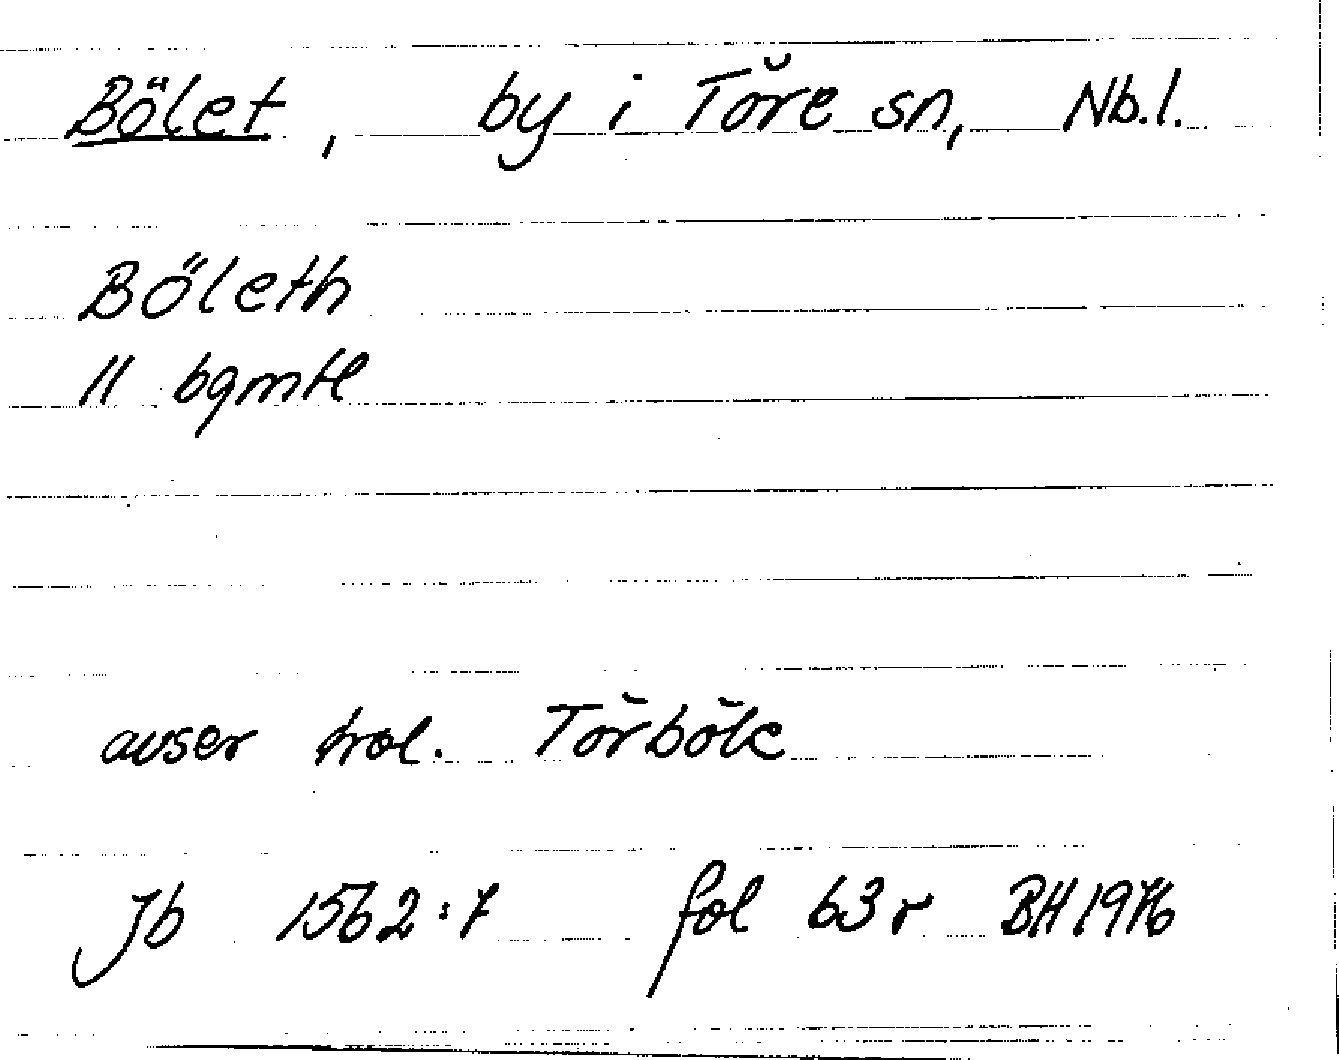 Bölet, by i Töre sn, Nb.l.
Böleth
11 bgmtl
avser trol. Törböle
Jb 1562:7 fol 63r BH 1976